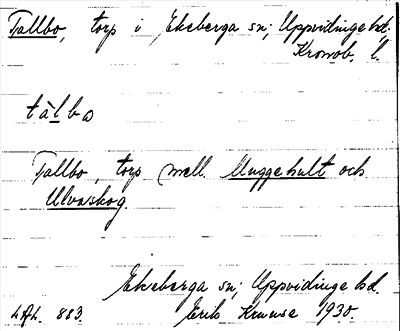 Tallbo, torp i Ekeberga sn; Uppvidinge hd.,
Kronob. l.
tàlbo
Tallbo, torp mell. Muggehult och
Ulvaskog.
Ekeberga sn; Uppvidinge hd.
L.A.L. 883. Erik Kruuse 1930.